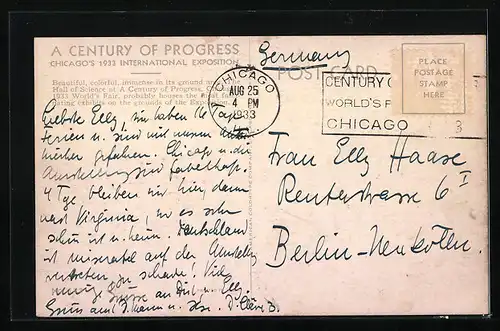 A CENTURY OF PROGRESS
CHICAGO'S 1933 INTERNATIONAL EXPOSITION
Beautiful, colorful, immense in its ground area, the
Hall of Science at A Century of Progress,
1933 World's Fair, probably houses the first
exhibits on the grounds of the Exposition.
Liebste Elly, wir haben 14 Tage
Ferien u. sind mit unserm Auto
hierher gefahren. Chicago u. die
Ausstellung sind fabelhaft.
4 Tge. bleiben wir hier, dann
nach Virginia, wo es sehr
schön ist u. heim. Deutschland
ist miserabel auf der Ausstellung
vertreten, zu schade! Viele
Grüsse an Dich u. Elly.
Gruss auf
Germany
POST CARD
CHICAGO
AUG 25
4 PM
1933
CENTURY O
WORLD'S F
CHICAGO
3
PLACE
POSTAGE
STAMP
HERE
Frau Elly Haase
Reuterstrasse 6 I
Berlin-Neukölln.